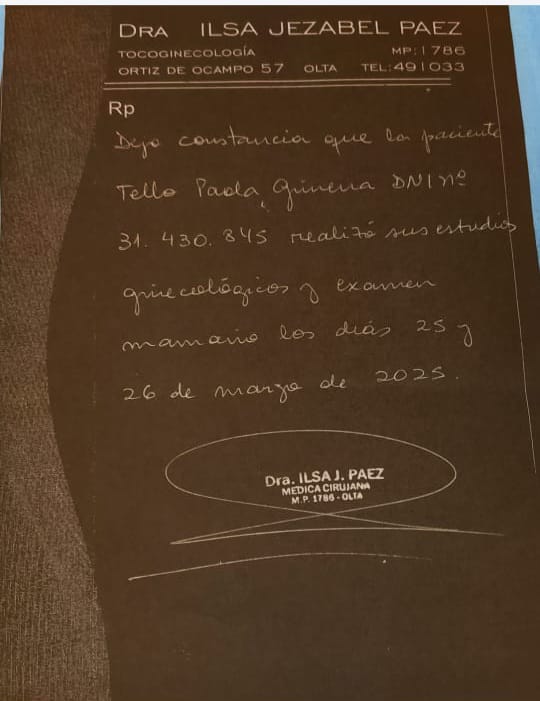 DRA ILSA JEZABEL PAEZ
TOCOGINECOLOGÍA MP:1786
ORTIZ DE OCAMPO 57 OLTA TEL:491033
Rp
Dejo constancia que la paciente
Tello Paola Gimena DNI nº
31.430.845 realizó sus estudios
ginecológicos y examen
mamario los días 25 y
26 de marzo de 2025.
Dra. ILSA J. PAEZ
MEDICA CIRUJANA
M.P. 1786 - OLTA